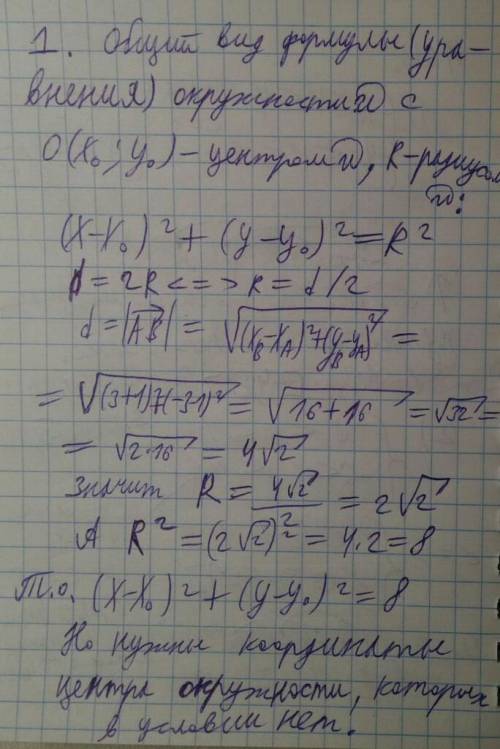 1. Общий вид формулы (ура-
внения) окружности с
O(x₀; y₀) – центром, R-радиусом:
(x-x₀)² + (y-y₀)² = R²
d = 2R <=> R = d/2
d = |AB| = √((x_B-x_A)²+(y_B-y_A)²) =
= √((3+1)²+(-3-1)²) = √(16+16) = √32 =
= √(2·16) = 4√2
Значит R = 4√2 = 2√2
А R² = (2√2)² = 4·2 = 8
Т.о. (x-x₀)² + (y-y₀)² = 8
Но нужны координаты
центра окружности, которых
в условии нет.